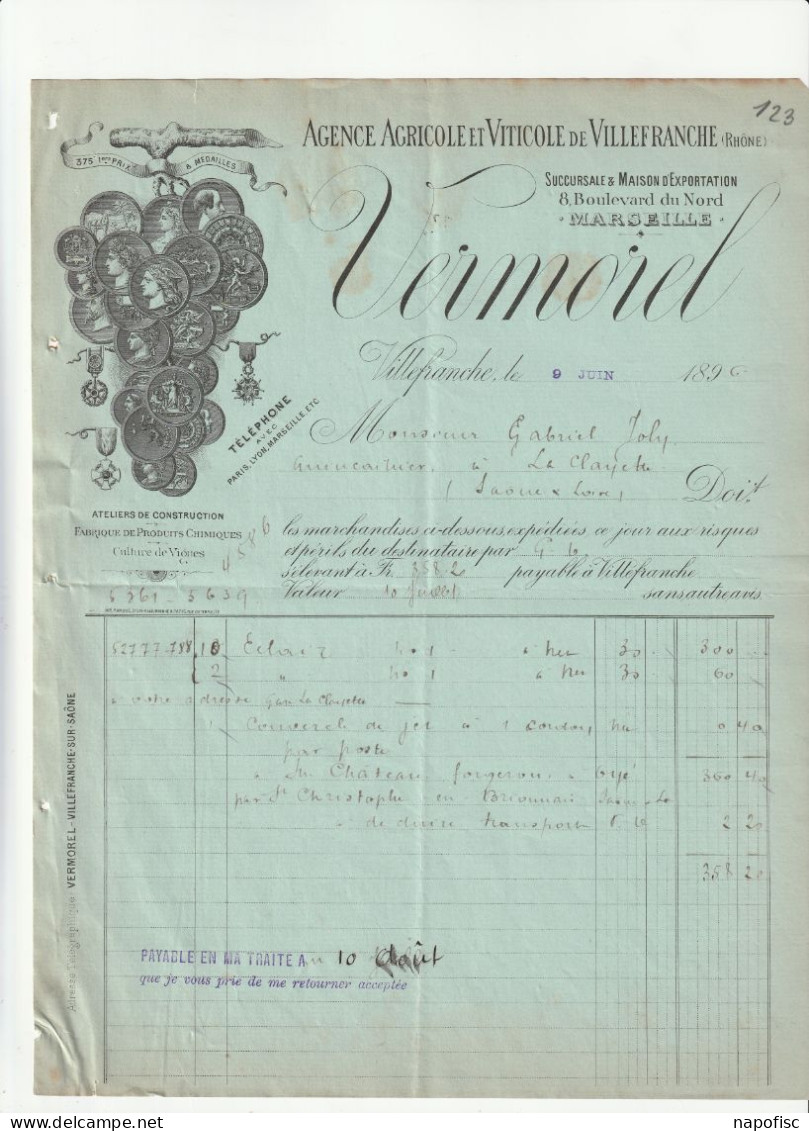 123
AGENCE AGRICOLE ET VITICOLE DE VILLEFRANCHE (RHÔNE)
375 1ers PRIX & MÉDAILLES
SUCCURSALE & MAISON D'EXPORTATION
8, Boulevard du Nord
MARSEILLE
Vermorel
Villefranche, le 9 JUIN 1896
TÉLÉPHONE
AVEC
PARIS, LYON, MARSEILLE, ETC
Monsieur Gabriel Joly
à La Clayette
(Saône & Loire) Doit
ATELIERS DE CONSTRUCTION
FABRIQUE DE PRODUITS CHIMIQUES
Culture de Vignes
4586
les marchandises ci-dessous, expédiées ce jour aux risques
et périls du destinataire par G. V.
s'élevant à Fr. 358 20 payable à Villefranche
Valeur 10 Juillet sans autre avis.
5361-5639
52777-788 10 Eclair No 1 à Nu 30 300
2 " No 1 à Nu 30 60
à votre adresse gare La Clayette
1 Couvercle de jet à 1 Nu 0 40
par poste
à Mr Château forgeron à Oyé 360 40
par St Christophe en Brionnais Saône & Lo
à déduire transport 2 20
358 20
PAYABLE EN MA TRAITE AU 10 Août
que je vous prie de me retourner acceptée
Adresse Télégraphique VERMOREL-VILLEFRANCHE-SUR-SAÔNE
napofisc